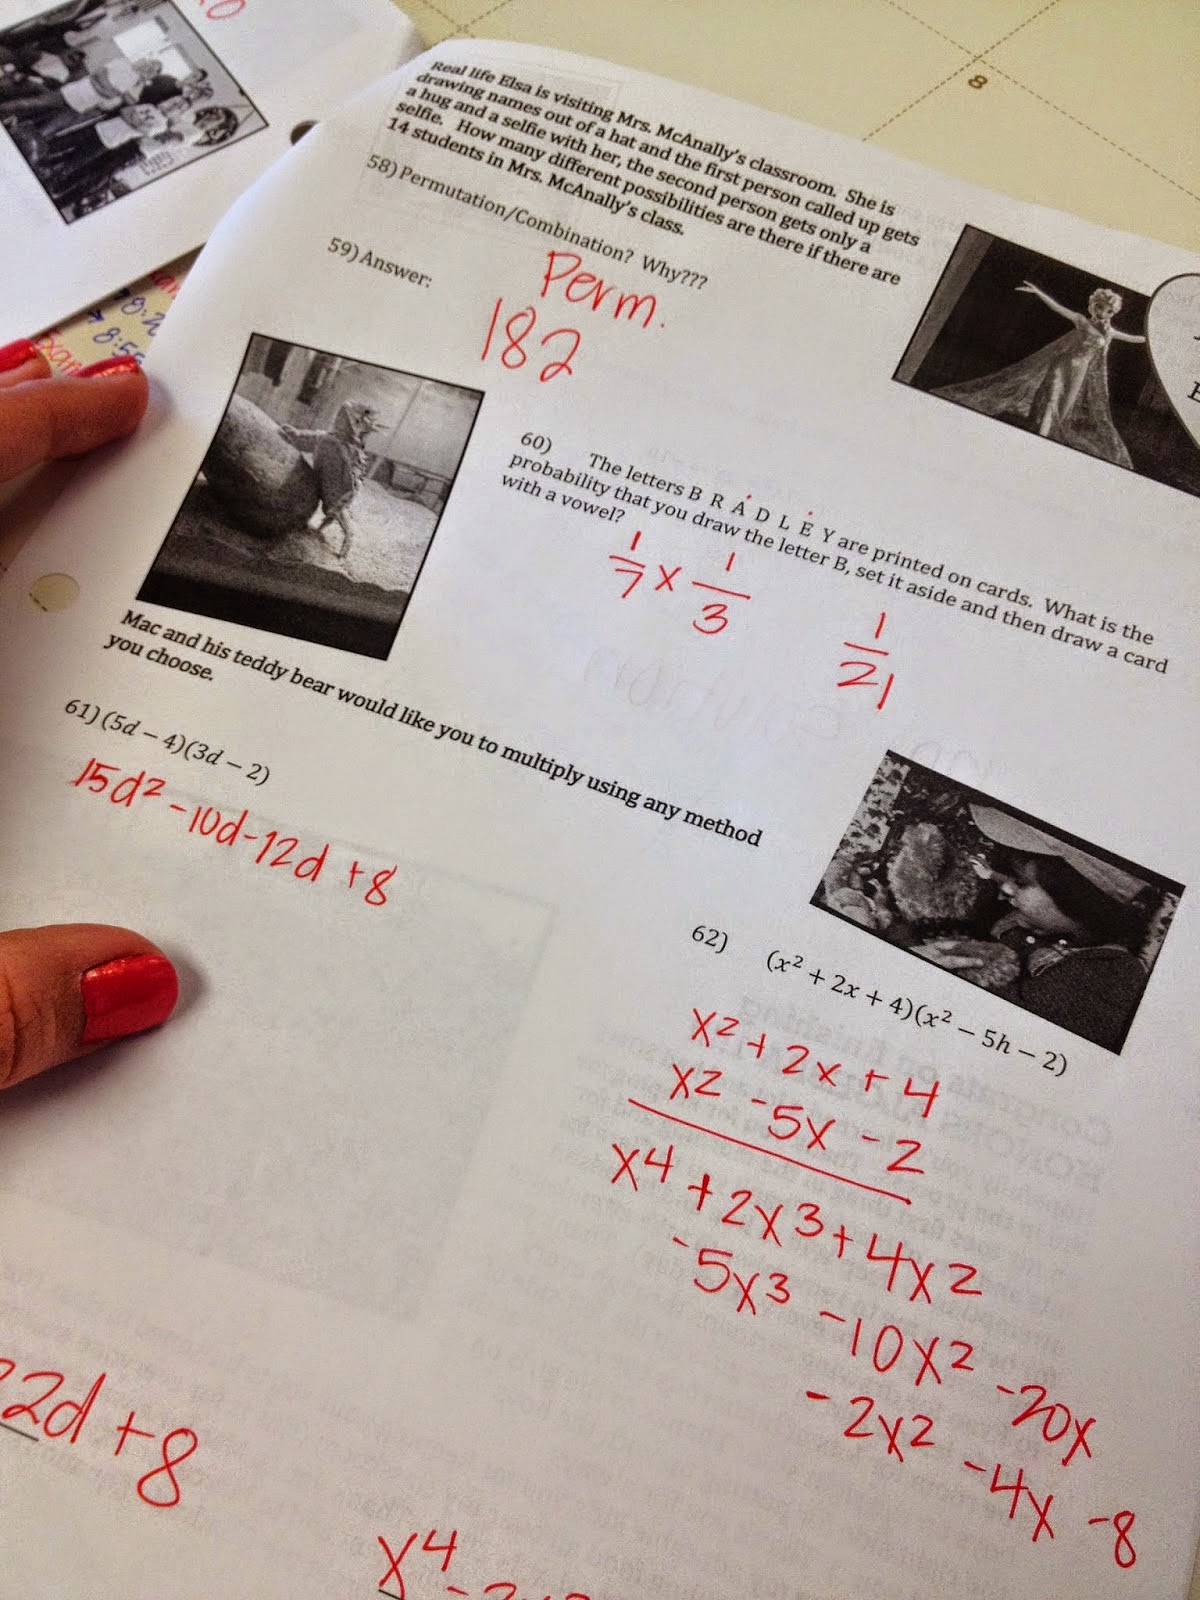 Real life Elsa is visiting Mrs. McAnally's classroom. She is
drawing names out of a hat and the first person called up gets
a hug and a selfie with her, the second person gets only a
selfie. How many different possibilities are there if there are
14 students in Mrs. McAnally's class.
58) Permutation/Combination? Why???
Perm.
59) Answer:
182
60) The letters B R A D L E Y are printed on cards. What is the
probability that you draw the letter B, set it aside and then draw a card
with a vowel?
1/7 x 1/3
1/21
Mac and his teddy bear would like you to multiply using any method
you choose.
61) (5d – 4)(3d – 2)
15d² -10d-12d +8
22d +8
62) (x² + 2x + 4)(x² – 5h – 2)
x² + 2x + 4
x² -5x -2
x⁴ + 2x³ + 4x²
-5x³ -10x² -20x
-2x² -4x -8
x⁴
8